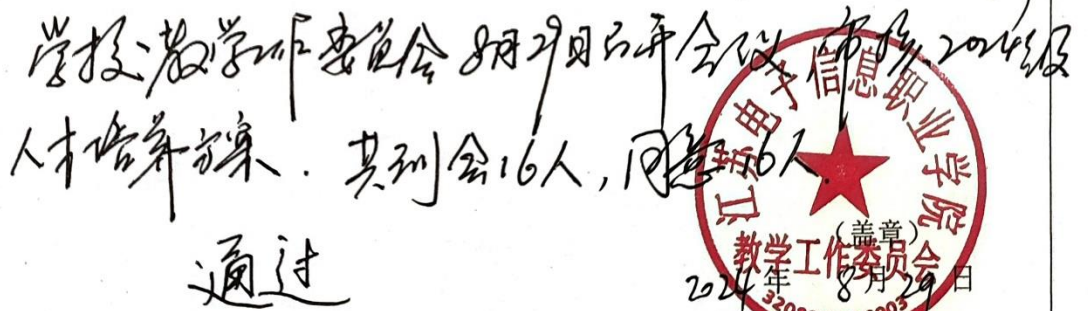 学校教学工作委员会8月29日召开会议 审核2024级
人才培养方案．共到会16人，同意16人．
通过
江苏电子信息职业学院
（盖章）
教学工作委员会
2024年 8月29日